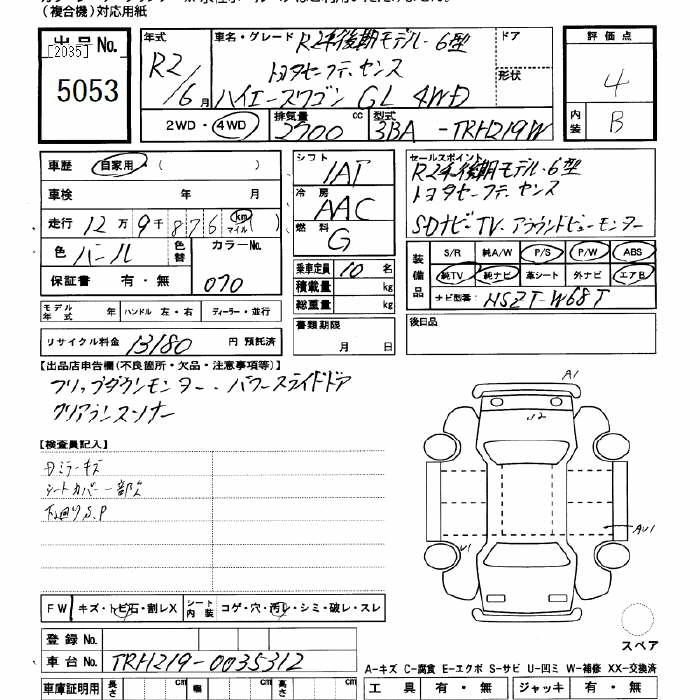 (複合機)対応用紙
出品No.
[2035]
5053
年式
R2/6月
車名・グレード
R2年後期モデル・6型
トヨタセーフティセンス
ハイエースワゴン GL 4WD
ドア
形状
評価点
4
内装
B
2WD・4WD
排気量
2700 cc
型式
3BA-TRH219W
車歴 自家用・( )
車検 年 月
走行 12万9千876 km マイル( )
色 パール
色替
カラーNo.
070
保証書 有・無
シフト
IAT
冷房
AAC
燃料
G
乗車定員 10 名
積載量 kg
総重量 kg
書類期限
月 日
セールスポイント
R2年後期モデル・6型
トヨタセーフティセンス
SDナビ・TV・アラウンドビューモンター
装備品
S/R 純A/W P/S P/W ABS
純TV 純ナビ 革シート 外ナビ エアB
ナビ型番: NSZT-W68T
後日品
モデル年式 年 ハンドル 左・右 ディーラー・並行
リサイクル料金 13180 円 預託済
【出品店申告欄(不良箇所・欠品・注意事項等)】
フリップダウンモンター・パワースライドドア
クリアランスソナー
【検査員記入】
Dミラーキズ
シートカバー一部欠
下廻りS.P
A1
U2
AU1
U1
スペア
FW キズ・トビ石・割レX
シート内装 コゲ・穴・汚レ・シミ・破レ・スレ
登録No.
車台No. TRH219-0035312
A-キズ C-腐食 E-エクボ S-サビ U-凹ミ W-補修 XX-交換済
車庫証明用 長さ cm 幅 cm 高さ cm
工具 有・無 ジャッキ 有・無